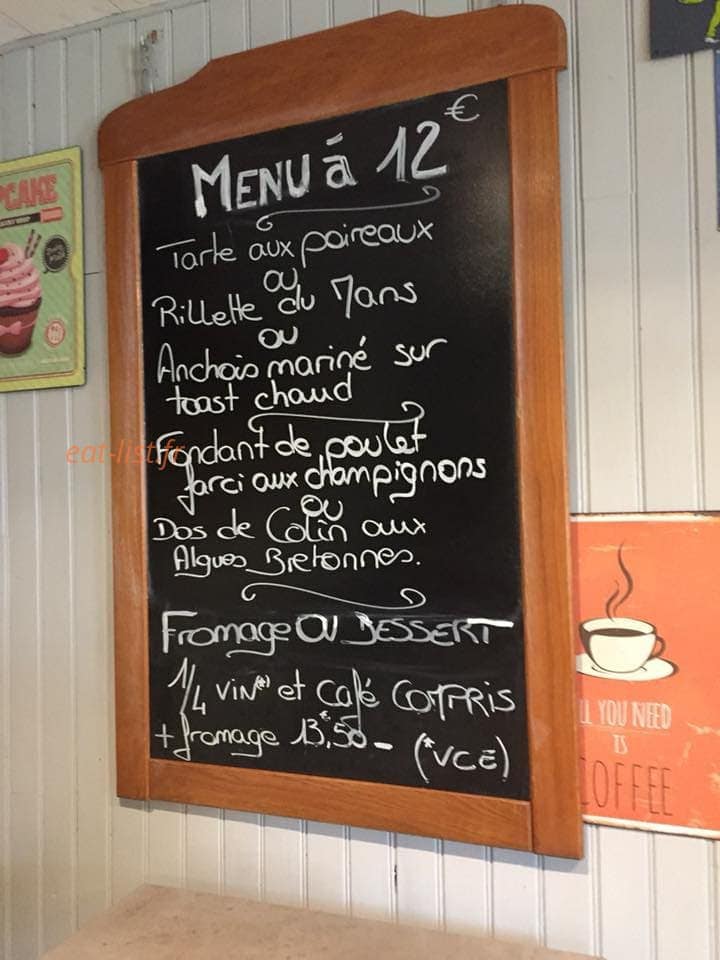 MENU à 12 €
Tarte aux poireaux
ou
Rillette du Mans
ou
Anchois mariné sur
toast chaud
Fondant de poulet
farci aux champignons
ou
Dos de Colin aux
Algues Bretonnes.
Fromage OU DESSERT
1/4 vin(*) et café COMPRIS
+ fromage 13,€50 - (*VCE)
eat-list.fr
PCAKE
LL YOU NEED
IS
COFFEE